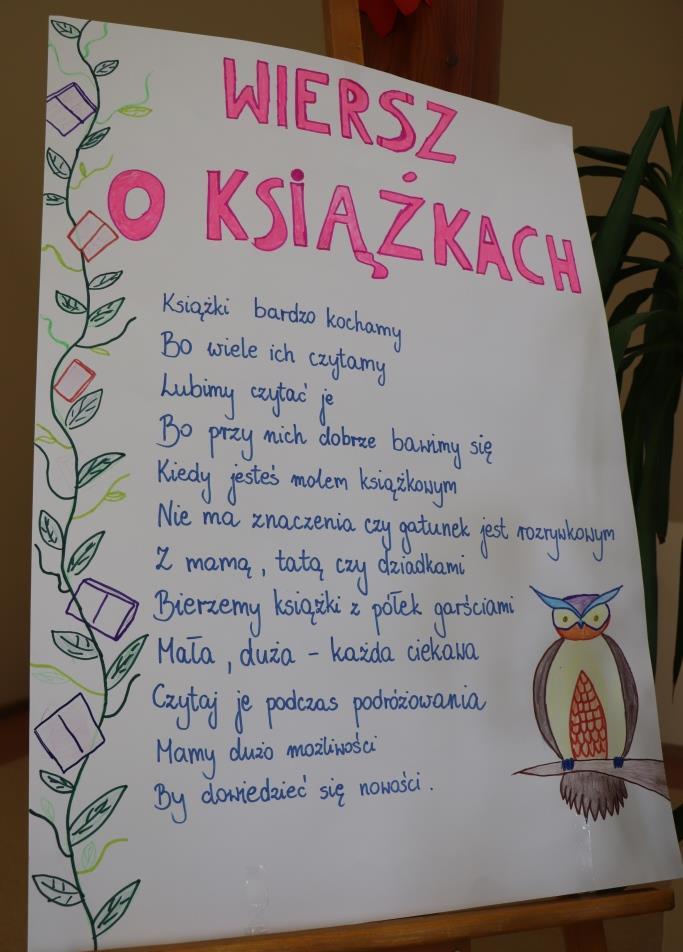 WIERSZ
O KSIĄŻKACH
Książki bardzo kochamy
Bo wiele ich czytamy
Lubimy czytać je
Bo przy nich dobrze bawimy się
Kiedy jesteś molem książkowym
Nie ma znaczenia czy gatunek jest rozrywkowym
Z mamą, tatą czy dziadkami
Bierzemy książki z półek garściami
Mała, duża - każda ciekawa
Czytaj je podczas podróżowania
Mamy dużo możliwości
By dowiedzieć się nowości.